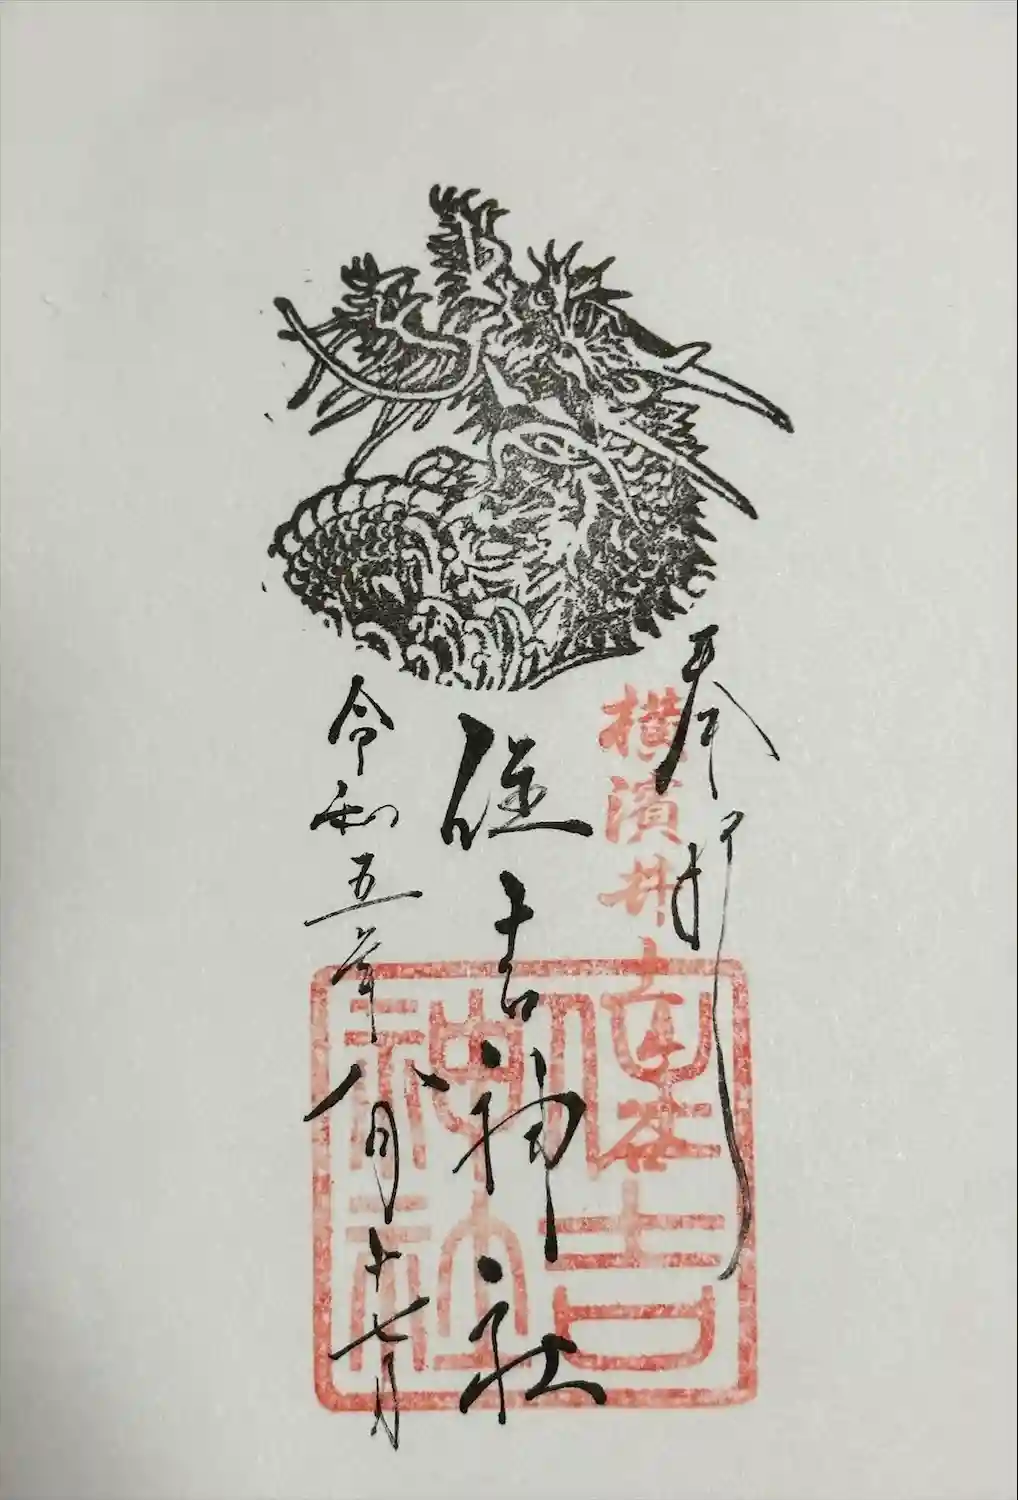 奉拝
横濱井土ヶ谷
住吉神社
住吉神社
令和五年八月十七日